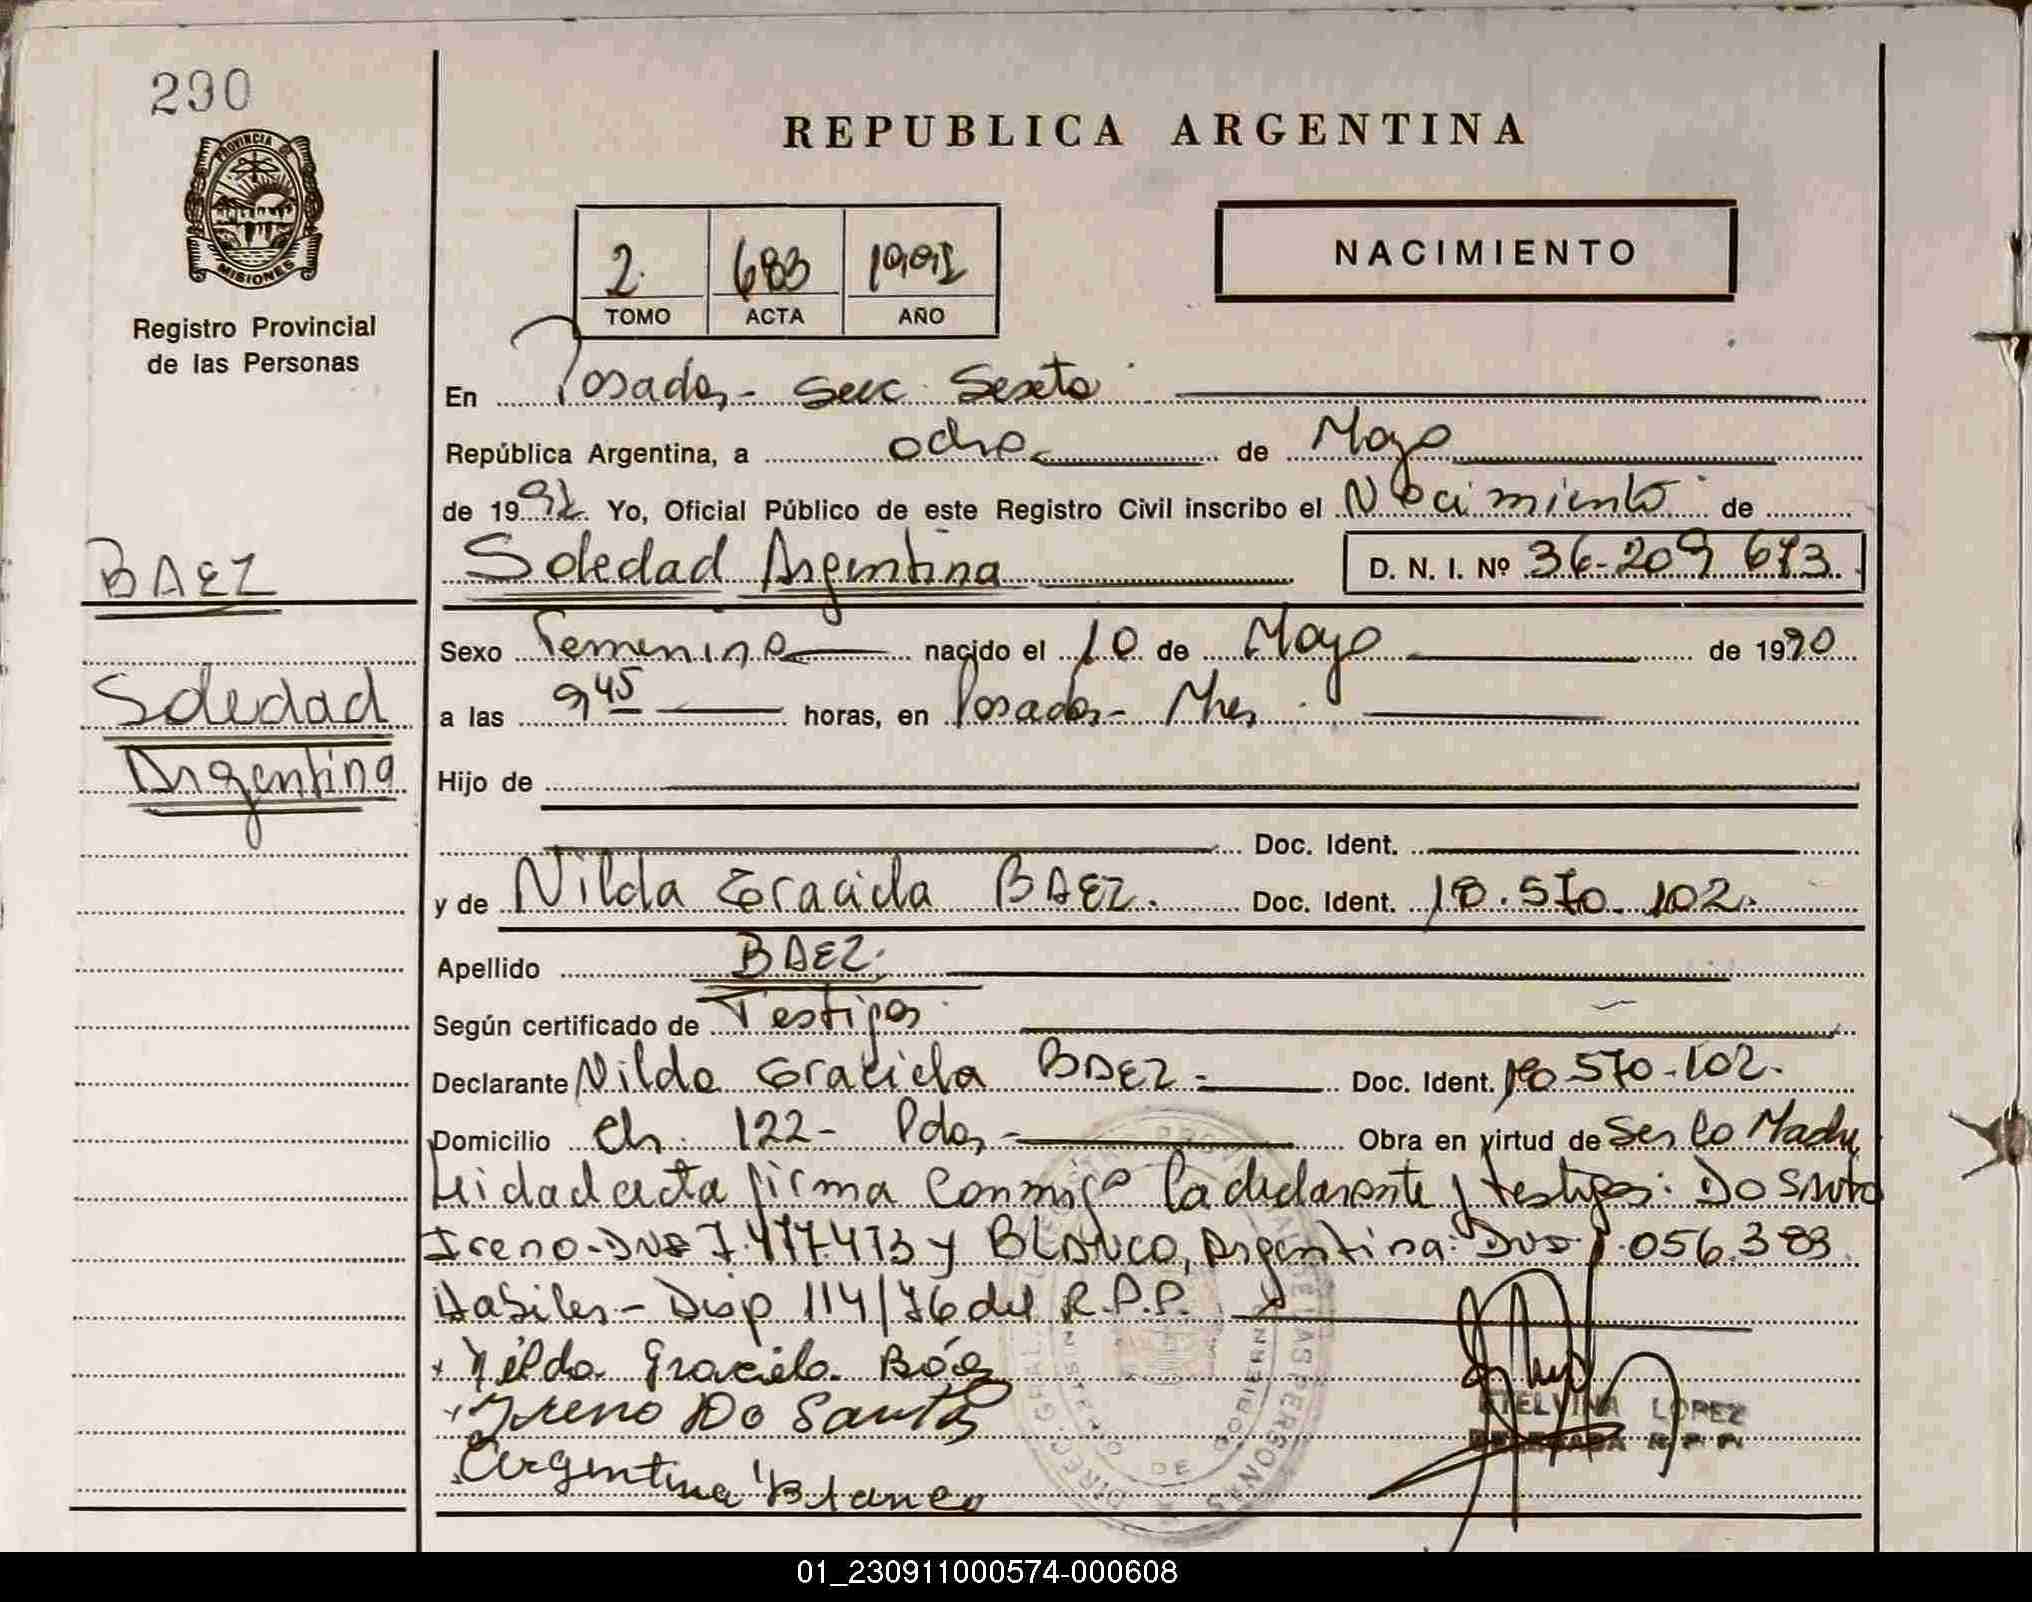 290
PROVINCIA DE
MISIONES
Registro Provincial
de las Personas
REPUBLICA ARGENTINA
2 683 1991
TOMO ACTA AÑO
NACIMIENTO
En Posadas - Secc. Sexta
República Argentina, a ocho de Mayo
de 1991. Yo, Oficial Público de este Registro Civil inscribo el Nacimiento de
BAEZ
Soledad Argentina D. N. I. Nº 36-209 673
Sexo Femenino nacido el 10 de Mayo de 1990
Soledad
a las 9 45 horas, en Posadas - Mnes
Argentina
Hijo de
Doc. Ident.
y de Nilda Graciela BAEZ. Doc. Ident. 18.570.102.
Apellido BAEZ.
Según certificado de Testigos
Declarante Nilda Graciela BAEZ - Doc. Ident. 18 570-102.
Domicilio Ch. 122 - Pdas - Obra en virtud de Ser la Madre
Leida el acta firma conmigo la declarante y testigos: DO SANTOS
Ireno - DNI 7.477.473 y BLANCO, Argentina: DNI .056.389.
Habiles - Disp 114/76 del R.P.P.
Nilda Graciela Báez
Ireno Do Santos
Argentina Blanco
ETELVINA LOPEZ
DELEGADA R. P. P.
01_230911000574-000608